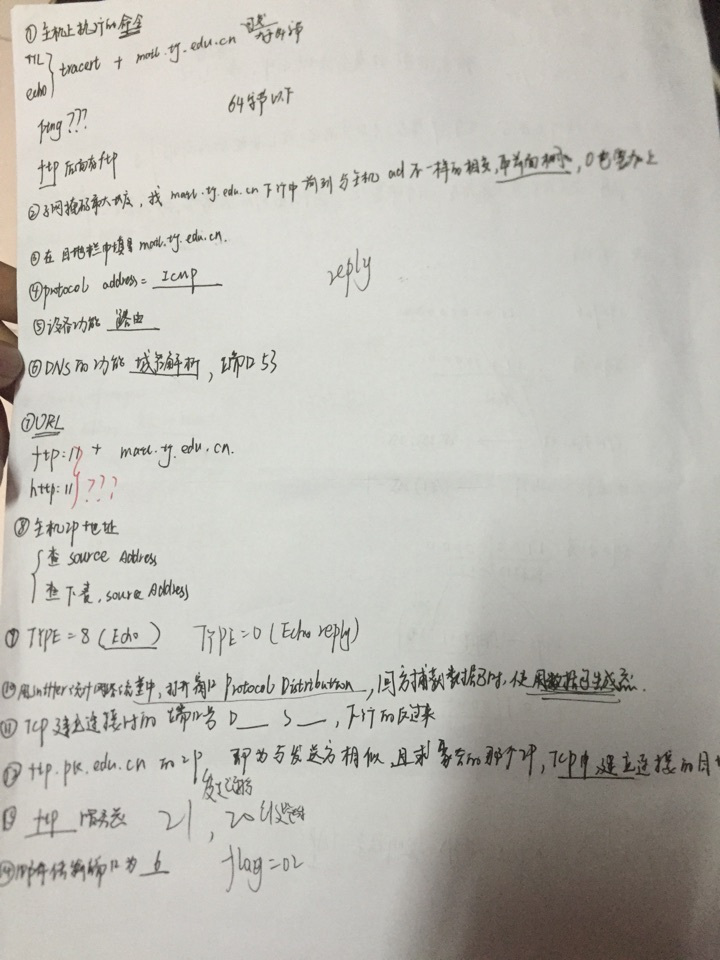 ①主机上执行的命令
TTL
echo } tracert + mail.tj.edu.cn
64字节以下
ping ???
ftp 后面有ftp
②子网掩码最大长度，找 mail.tj.edu.cn 下行中前到与主机 add 不一样的相交，再前面相加，0也要加上
③在目地栏中填写 mail.tj.edu.cn.
④protocol address= Icmp
reply
⑤设备功能 路由
⑥DNS的功能 域名解析，端口53
⑦URL
ftp:// + mail.tj.edu.cn.
http:// ???
⑧主机IP地址
查 source Address
查下表，source Address
⑨TYPE=8 (Echo) TYPE=0 (Echo reply)
⑩用sniffer统计网络流量中，打开窗口 Protocol Distribution，同方捕获数据包时，使用数据包生成器.
⑪TCP建立连接时的端口号 D__ S__，下行的反过来
⑫ftp.pk.edu.cn 的IP 即为与发送方相似，且求 的那个IP，TCP中建立连接的目
⑬ftp 服务器 21, 20
⑭邮件传输端口为 6 flag=02